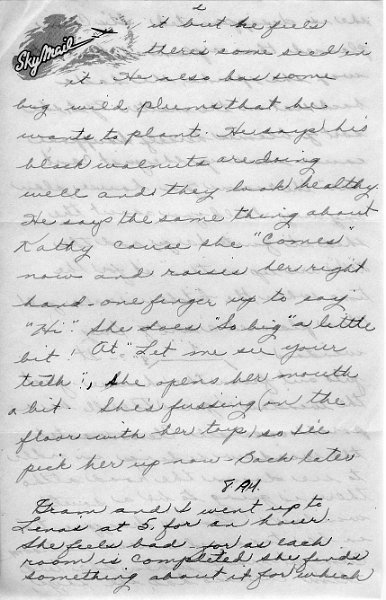 2
Sky Mail
it but he feels
there's some seed in
it. He also has some
big wild plums that he
wants to plant. He says his
black walnuts are doing
well and they look healthy.
He says the same thing about
Kathy cause she "Comes"
now and raises her right
hand - one finger up to say
"Hi". She does "So big" a little
bit! At "Let me see your
teeth", she opens her mouth
a bit. She's fussing (on the
floor with her top) so I'll
pick her up now - Back later
8 AM
Gram and I went up to
Lenas at 5. for an hour.
She feels bad for as each
room is completed she finds
something about it for which